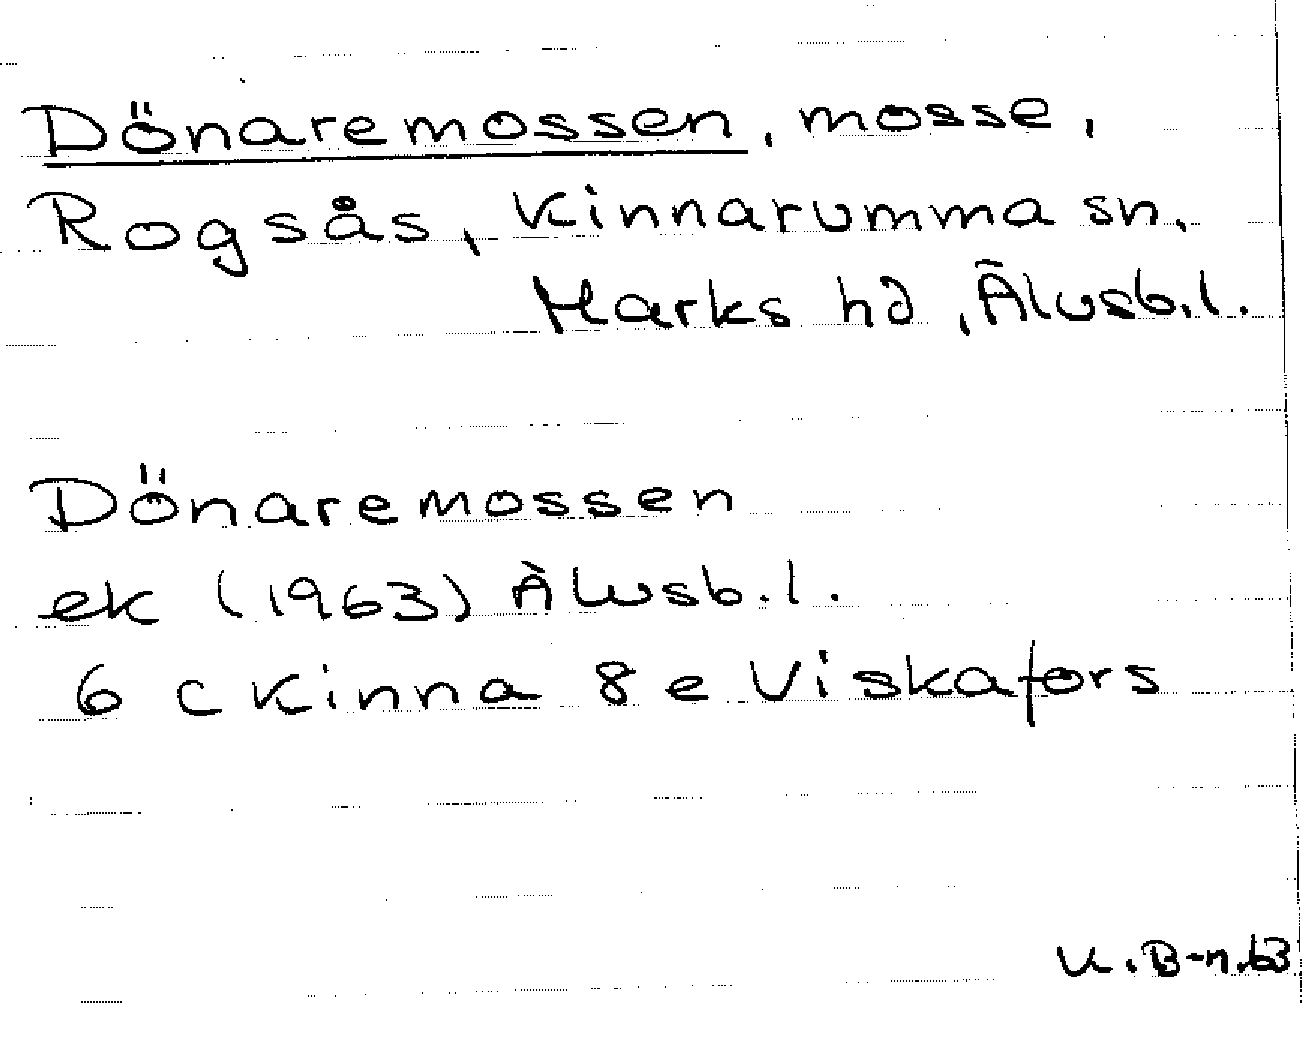 Dönaremossen, mosse,
Rogsås, Kinnarumma sn,
Marks hd, Älvsb.l.
Dönaremossen
ek (1963) Älvsb.l.
6 c Kinna 8 e Viskafors
U.B-n.63